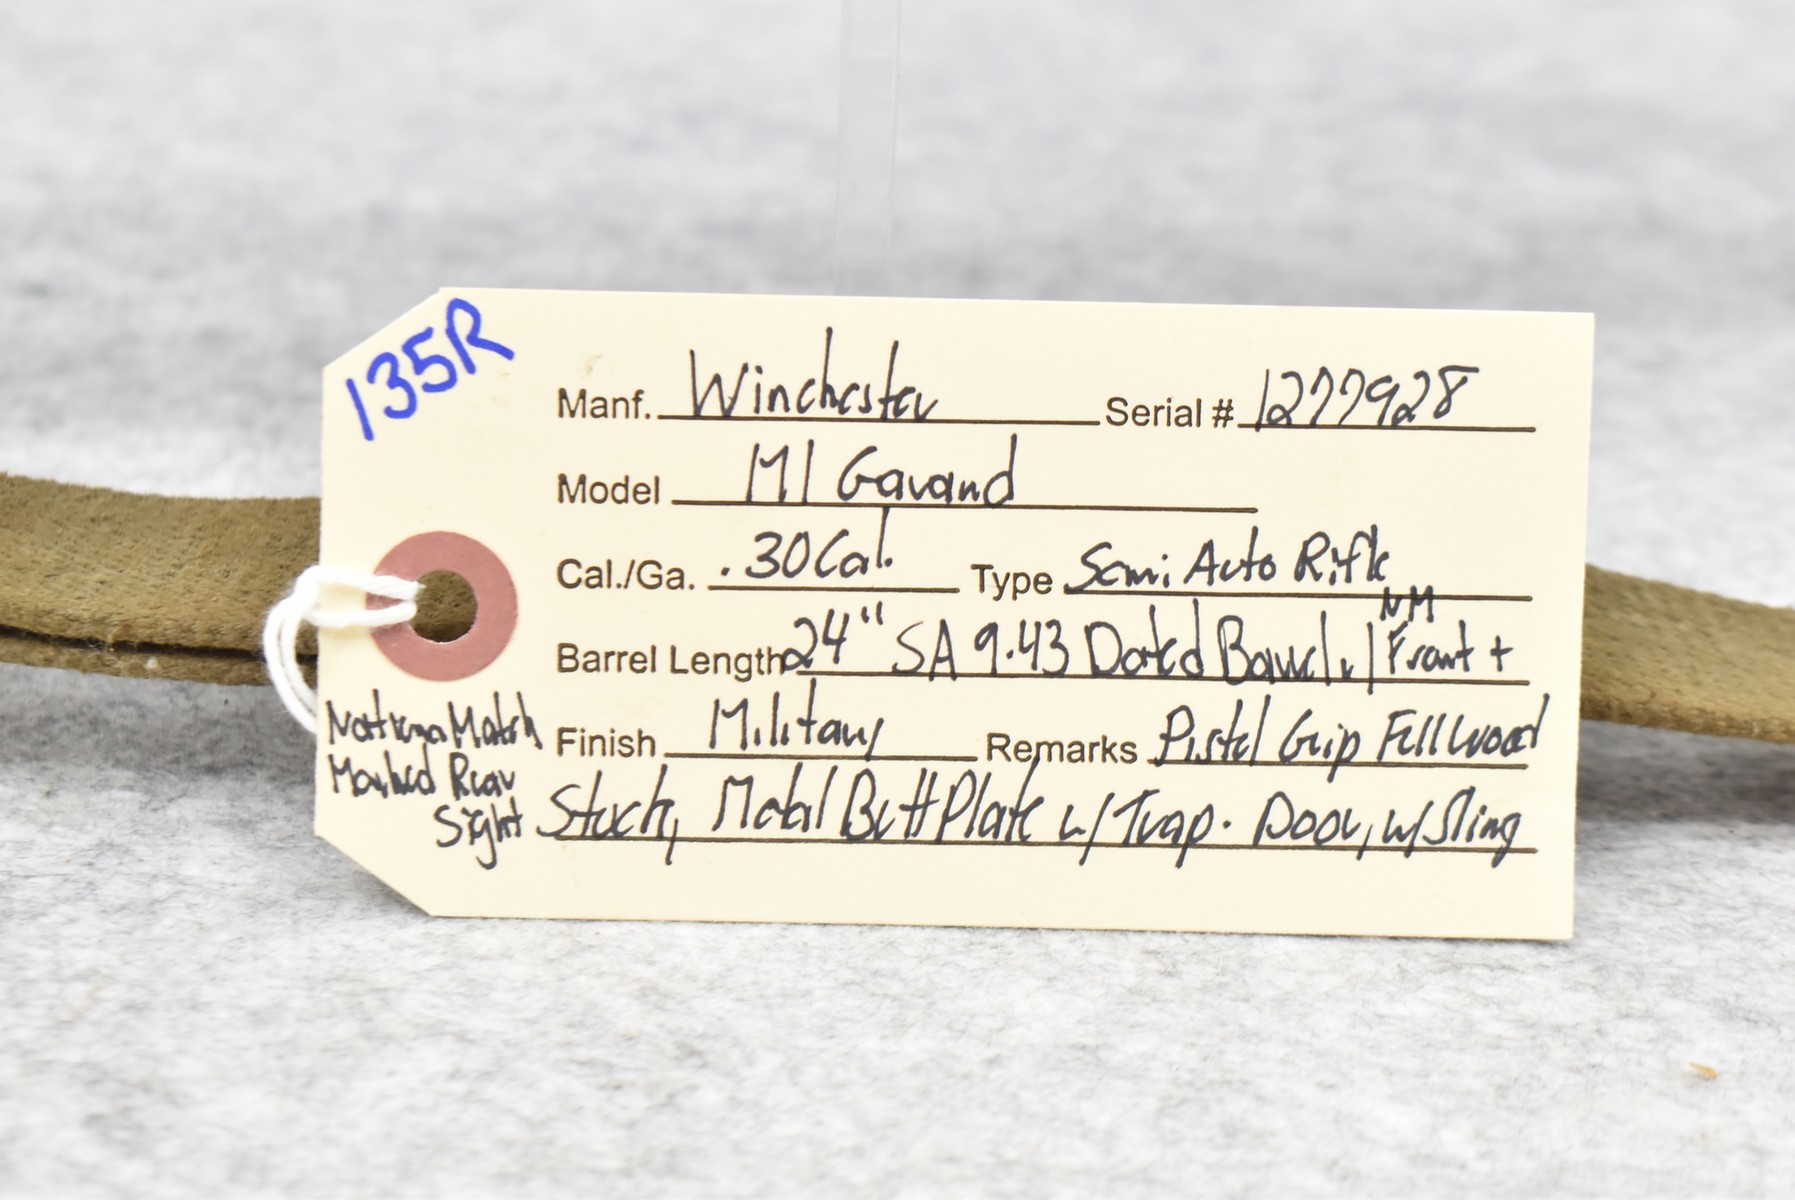 135R
Manf. Winchester Serial # 1277928
Model M1 Garand
Cal./Ga. .30 Cal. Type Semi Auto Rifle
Barrel Length 24" SA 9.43 Dated Barrel w/ NM Front +
National Match
Marked Rear
Sight
Finish Military Remarks Pistol Grip Full Wood
Stock, Metal Butt Plate w/ Trap. Door, w/ Sling